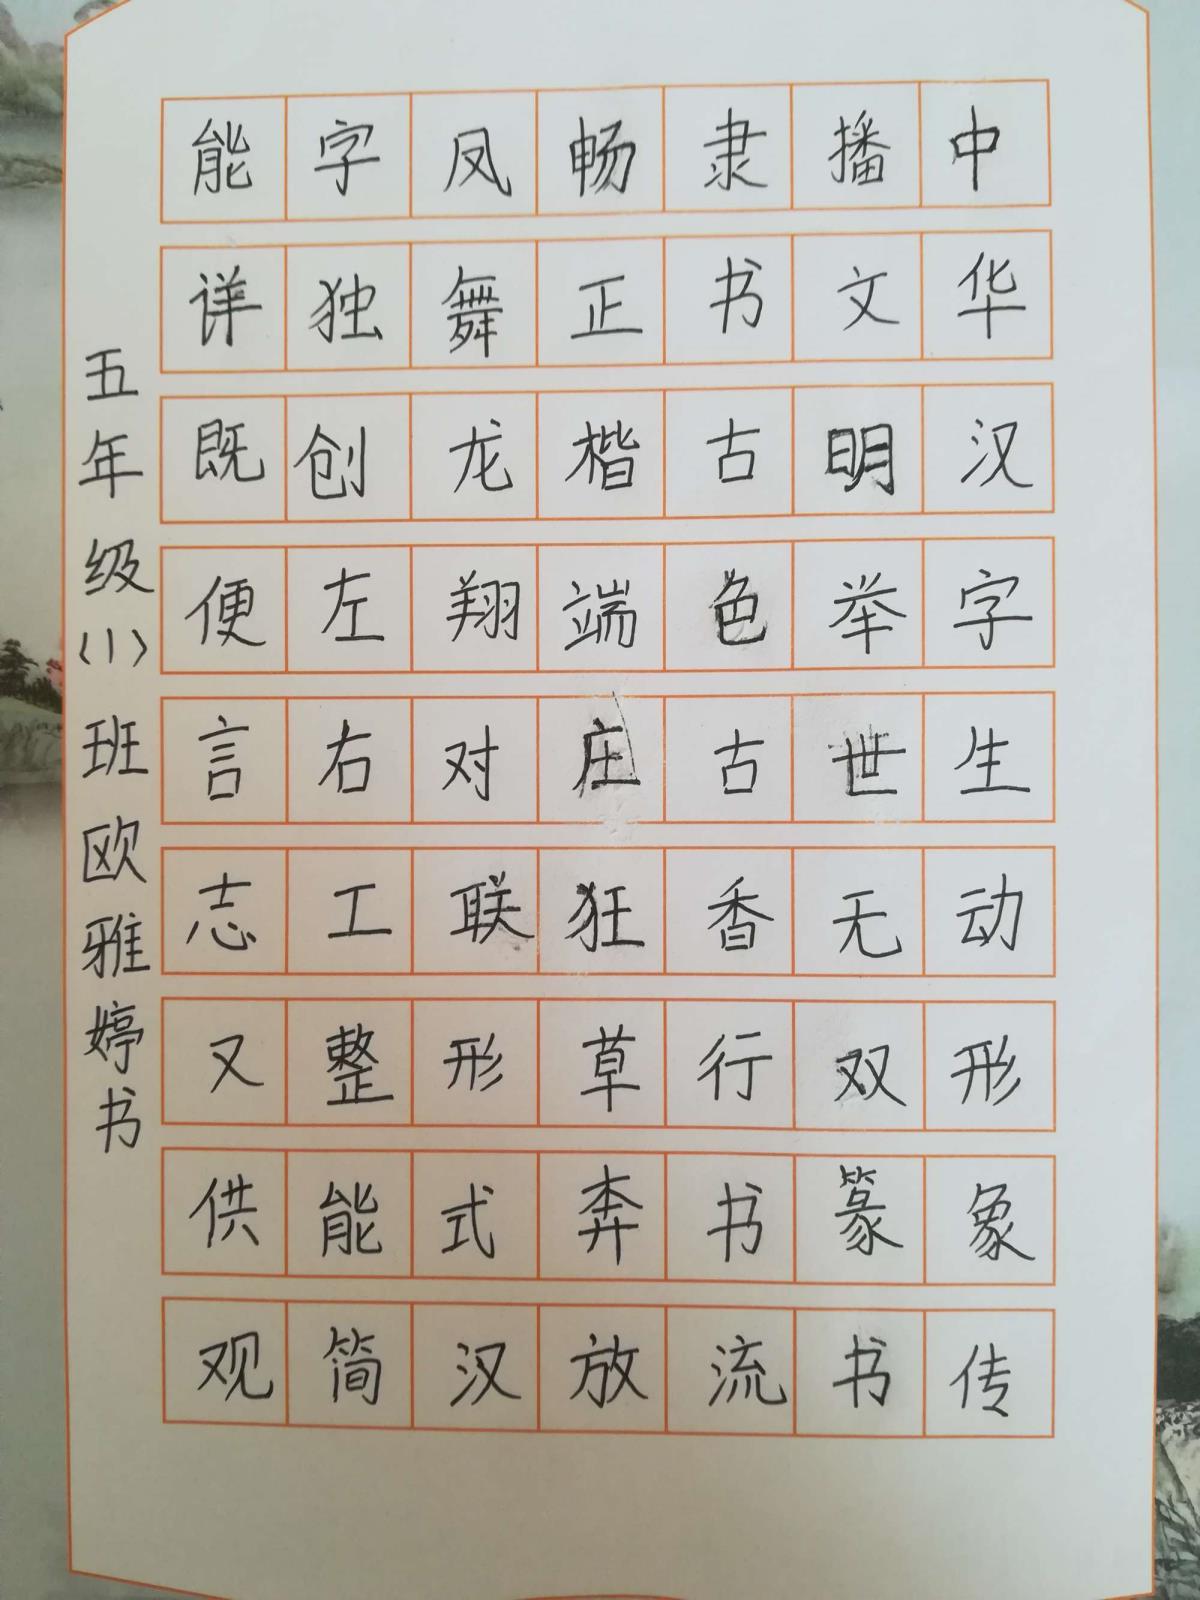 中华汉字生动形象传
播文明举世无双篆书
隶书古色古香行书流
畅正楷端庄狂草奔放
凤舞龙翔对联形式汉
字独创左右工整能简
能详既便言志又供观
五年级(1)班欧雅婷书